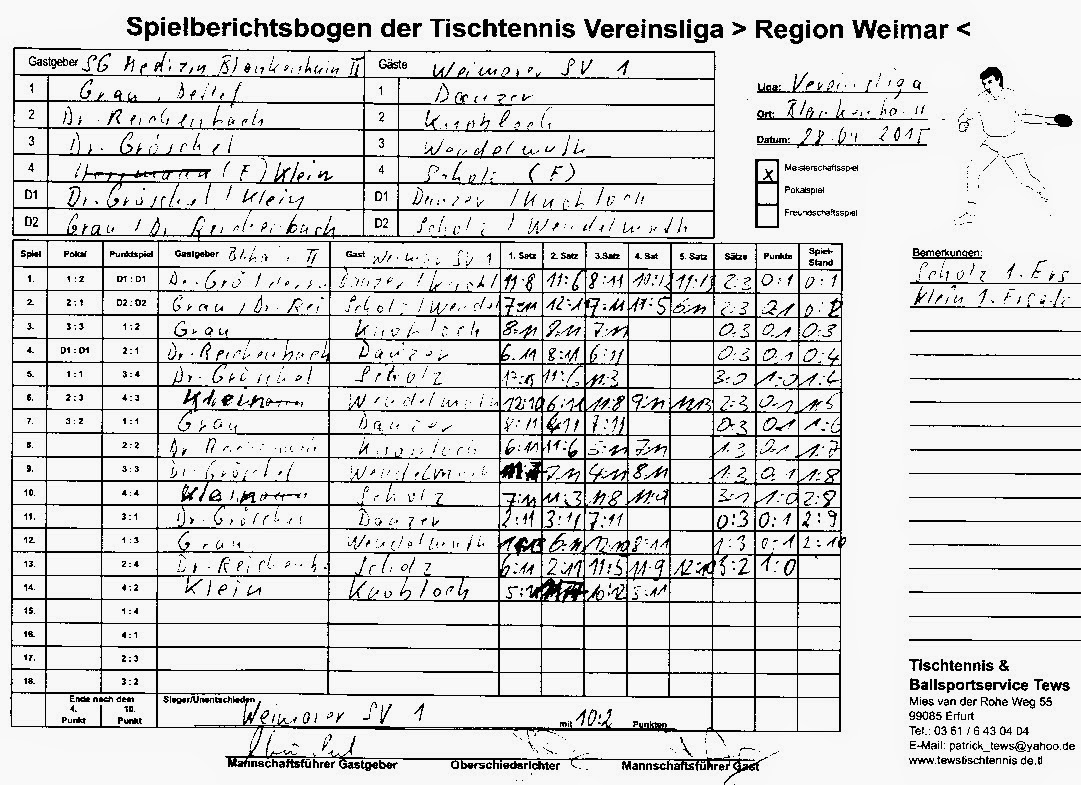 Spielberichtsbogen der Tischtennis Vereinsliga > Region Weimar <
Gastgeber SG Medizin Blankenhain II Gäste Weimarer SV 1
1 Grau, Detlef 1 Danzer
2 Dr. Reichenbach 2 Knobloch
3 Dr. Gröschel 3 Wendelmuth
4 (F) Klein 4 Scholz (F)
D1 Dr. Gröschel / Klein D1 Danzer / Knobloch
D2 Grau / Dr. Reichenbach D2 Scholz / Wendelmuth
Liga: Vereinsliga
Ort:
Datum: 28.04.2015
x Meisterschaftsspiel
Pokalspiel
Freundschaftsspiel
Spiel Pokal Punktspiel Gastgeber II Gast Weimarer SV 1 1. Satz 2. Satz 3.Satz 4. Sat 5. Satz Sätze Punkte Spiel-Stand
1. 1:2 D1:D1 11:8 11:6 8:11 2:3 0:1 0:1
2. 2:1 D2:D2 Grau / Dr. Rei Scholz / Wendel 7:11 7:11 11:5 6:11 2:3 0:1 0:2
3. 3:3 1:2 Grau Knobloch 8:11 8:11 7:11 0:3 0:1 0:3
4. D1:D1 2:1 Dr. Reichenbach Danzer 6:11 8:11 6:11 0:3 0:1 0:4
5. 1:1 3:4 Dr. Gröschel Scholz 11:6 11:3 3:0 1:0 1:4
6. 2:3 4:3 Wendelmuth 12:10 6:11 11:8 9:11 11:13 2:3 0:1 1:5
7. 3:2 1:1 Grau Danzer 8:11 4:11 7:11 0:3 0:1 1:6
8. 2:2 Knobloch 6:11 11:6 5:11 7:11 1:3 0:1 1:7
9. 3:3 Dr. Gröschel Wendelmuth 7:11 4:11 8:11 1:3 0:1 1:8
10. 4:4 Scholz 7:11 11:3 11:8 11:9 3:1 1:0 2:8
11. 3:1 Dr. Gröschel Danzer 2:11 3:11 7:11 0:3 0:1 2:9
12. 1:3 Grau Wendelmuth 6:11 12:10 8:11 1:3 0:1 2:10
13. 2:4 Dr. Reichenb. Scholz 6:11 2:11 11:5 11:9 12:10 3:2 1:0
14. 4:2 Klein Knobloch 10:12
15. 1:4
16. 4:1
17. 2:3
18. 3:2
Bemerkungen:
Scholz 1. Ers
Klein 1. Ersatz
Ende nach dem
4. Punkt 10. Punkt
Sieger/Unentschieden Weimarer SV 1 mit 10:2 Punkten
Mannschaftsführer Gastgeber Oberschiedsrichter Mannschaftsführer Gast
Tischtennis &
Ballsportservice Tews
Mies van der Rohe Weg 55
99085 Erfurt
Tel.: 03 61 / 6 43 04 04
E-Mail: patrick_tews@yahoo.de
www.tewstischtennis.de.tl